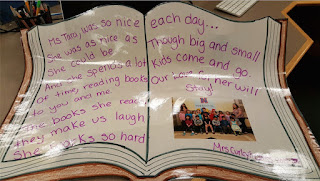 Ms Tara, was so nice
She was as nice as
she could be
And she spends a lot
of time, reading books
to you and me
The books she reads
they make us laugh
She works so hard
each day...
Though big and small
kids come and go
Our love for her will
Stay!
Mrs